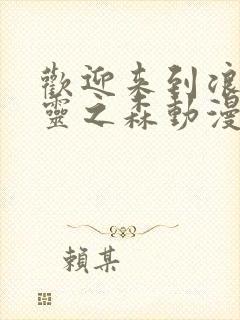 歡迎来到浪
靈之森動漫
賴某